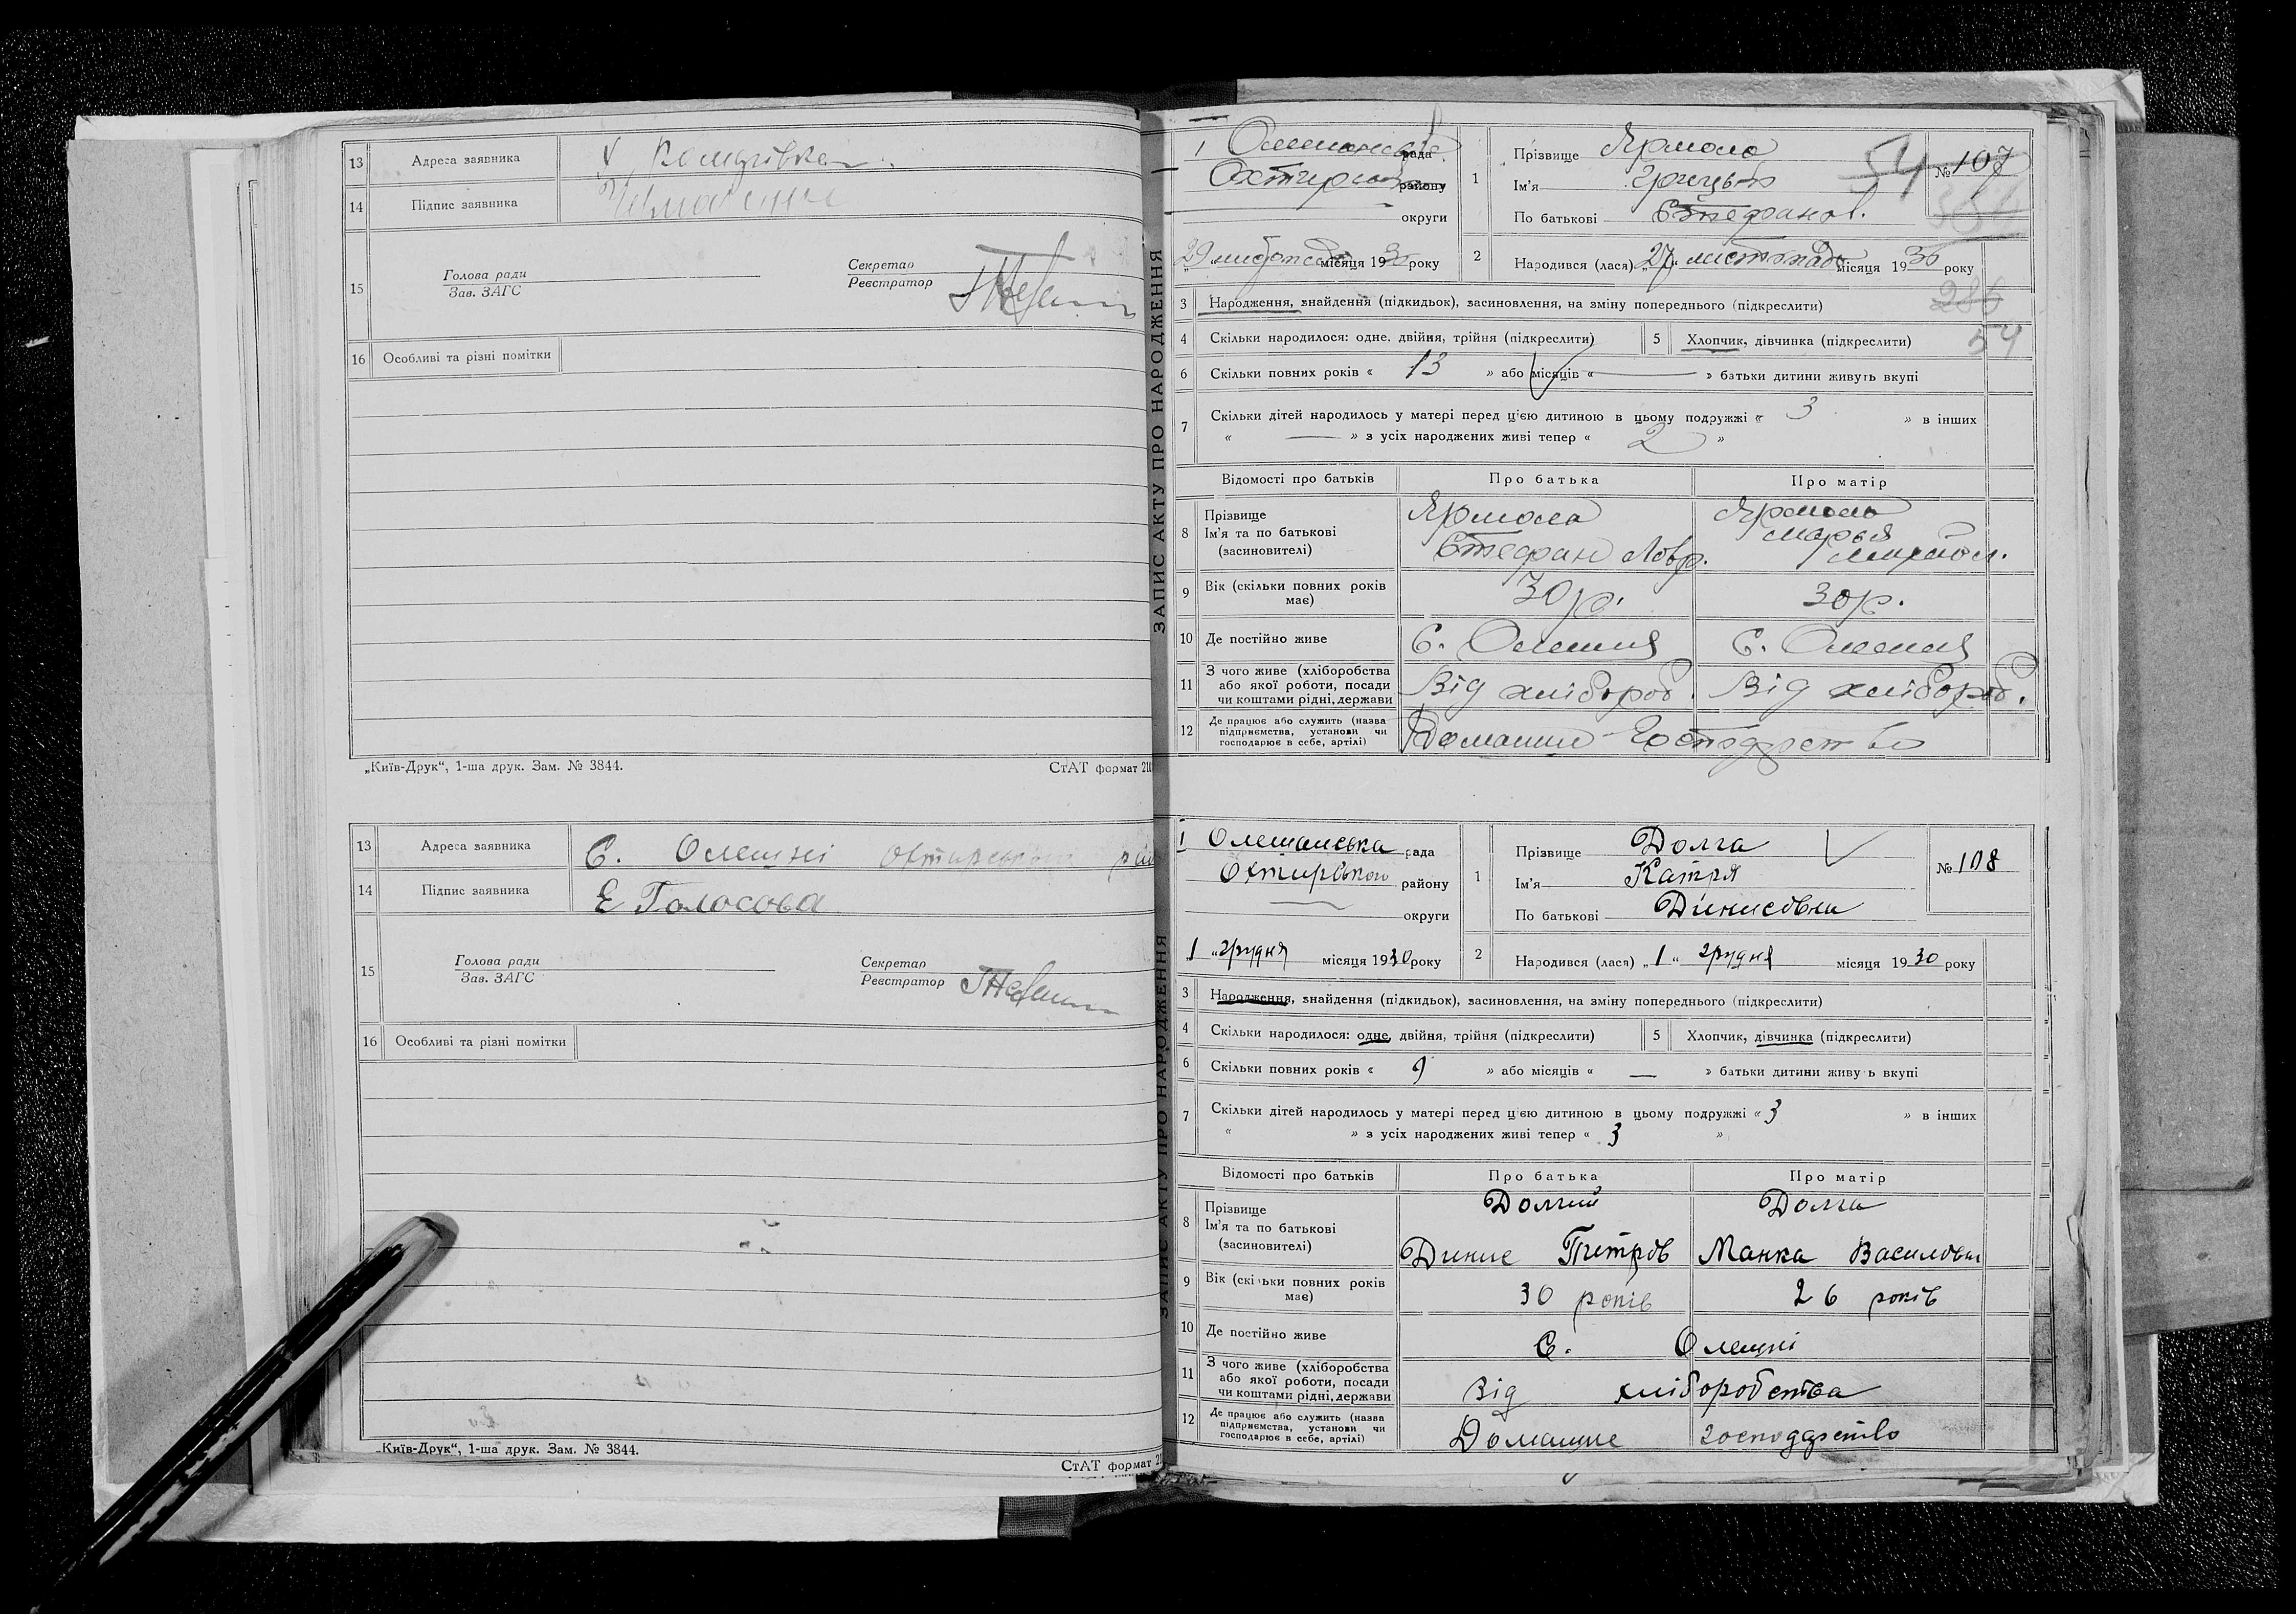 13 Адреса заявника
14 Підпис заявника
15 Голова ради
Зав. ЗАГС
Секретар
Реєстратор
16 Особливі та різні помітки
„Київ-Друк“, 1-ша друк. Зам. № 3844.
СтАТ формат 210
13 Адреса заявника С. Олешні Охтирського рай
14 Підпис заявника Е Голосова
15 Голова ради
Зав. ЗАГС
Секретар
Реєстратор
16 Особливі та різні помітки
„Київ-Друк“, 1-ша друк. Зам. № 3844.
СтАТ формат 21
ЗАПИС АКТУ ПРО НАРОДЖЕННЯ
рада
району
округи
29 місяця 1930 року
1 Прізвище Ярмола
Ім'я Грицько
По батькові Стефанов.
54
№ 107
2 Народився (лася) „27“ листопада місяця 1930 року
286
54
3 Народження, знайдення (підкидьок), засиновлення, на зміну попереднього (підкреслити)
4 Скільки народилося: одне, двійня, трійня (підкреслити)
5 Хлопчик, дівчинка (підкреслити)
6 Скільки повних років « 13 » або місяців « — » батьки дитини живуть вкупі
7 Скільки дітей народилось у матері перед цією дитиною в цьому подружжі « 3 » в інших
« — » з усіх народжених живі тепер « 2 »
Відомості про батьків Про батька Про матір
8 Прізвище Ярмола Ярмола
Ім'я та по батькові Марья
(засновителі) Стефан Лавр.
9 Вік (скільки повних років має) 30 р. 30 р.
10 Де постійно живе С. Олешня С. Олешня
11 З чого живе (хліборобства
або якої роботи, посади Від хлібороб. Від хлібороб.
чи коштами рідні, держави
12 Де працює або служить (назва
підприємства, установи чи Домашнє Господарство
господарює в себе, артілі)
ЗАПИС АКТУ ПРО НАРОДЖЕННЯ
1 Олешанська рада
Охтирського району
— округи
1 „грудня місяця 1930 року
1 Прізвище Долга
Ім'я Катря
По батькові Динисовна
№ 108
2 Народився (лася) „1“ грудня місяця 1930 року
3 Народження, знайдення (підкидьок), засиновлення, на зміну попереднього (підкреслити)
4 Скільки народилося: одне, двійня, трійня (підкреслити)
5 Хлопчик, дівчинка (підкреслити)
6 Скільки повних років « 9 » або місяців « — » батьки дитини живу ь вкупі
7 Скільки дітей народилось у матері перед цією дитиною в цьому подружжі « 3 » в інших
« » з усіх народжених живі тепер « 3 »
Відомості про батьків Про батька Про матір
8 Прізвище Долгий Долга
Ім'я та по батькові
(засиновителі) Динис Питров Манка Василовна
9 Вік (скільки повних років має) 30 років 26 років
10 Де постійно живе С. Олешні
11 З чого живе (хліборобства
або якої роботи, посади Від хліборобства
чи коштами рідні, держави
12 Де працює або служить (назва
підприємства, установи чи Домашнє господарство
господарює в себе, артілі)